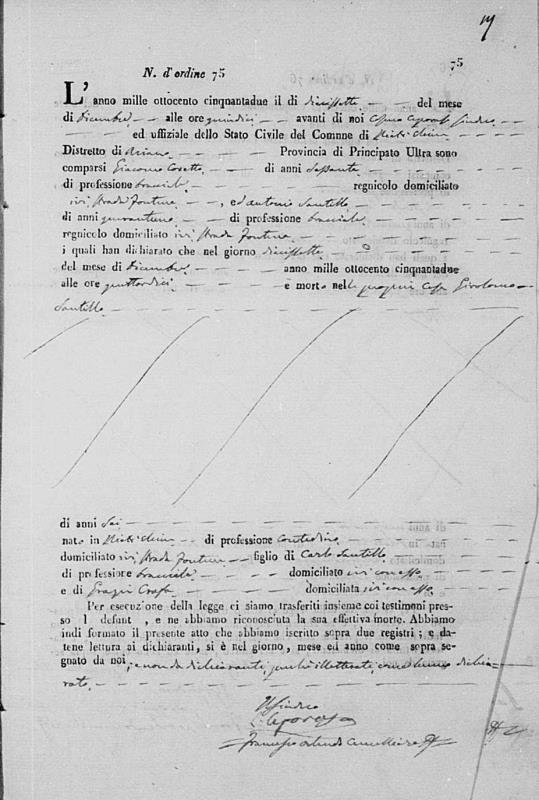 75
N. d'ordine 75
L'anno mille ottocento cinquantadue il dì diecissette del mese
di Dicembre alle ore quindici avanti di noi Sindaco
ed uffiziale dello Stato Civile del Comune di
Distretto di Ariano Provincia di Principato Ultra sono
comparsi Giacomo di anni Sessanta
di professione bracciale regnicolo domiciliato
ivi Strada Fontana, ed Antonio Santillo
di anni di professione bracciale
regnicolo domiciliato ivi Strada Fontana
i quali han dichiarato che nel giorno diecissette
del mese di Dicembre anno mille ottocento cinquantadue
alle ore quattordici è morto nella propria casa Girolamo
Santillo
di anni Sei
nato in di professione Contadino
domiciliato ivi Strada Fontana figlio di Carlo Santillo
di professione bracciale domiciliato ivi con esso
e di Grazia domiciliata ivi con esso
Per esecuzione della legge ci siamo trasferiti insieme coi testimoni pres-
so l defunt , e ne abbiamo riconosciuta la sua effettiva morte. Abbiamo
indi formato il presente atto che abbiamo iscritto sopra due registri; e da-
tene lettura ai dichiaranti, si è nel giorno, mese ed anno come sopra se-
gnato da noi, e non da dichiaranti, perchè illetterati, come hanno dichia-
rato
Il Sindaco
Francesco Cancelliere